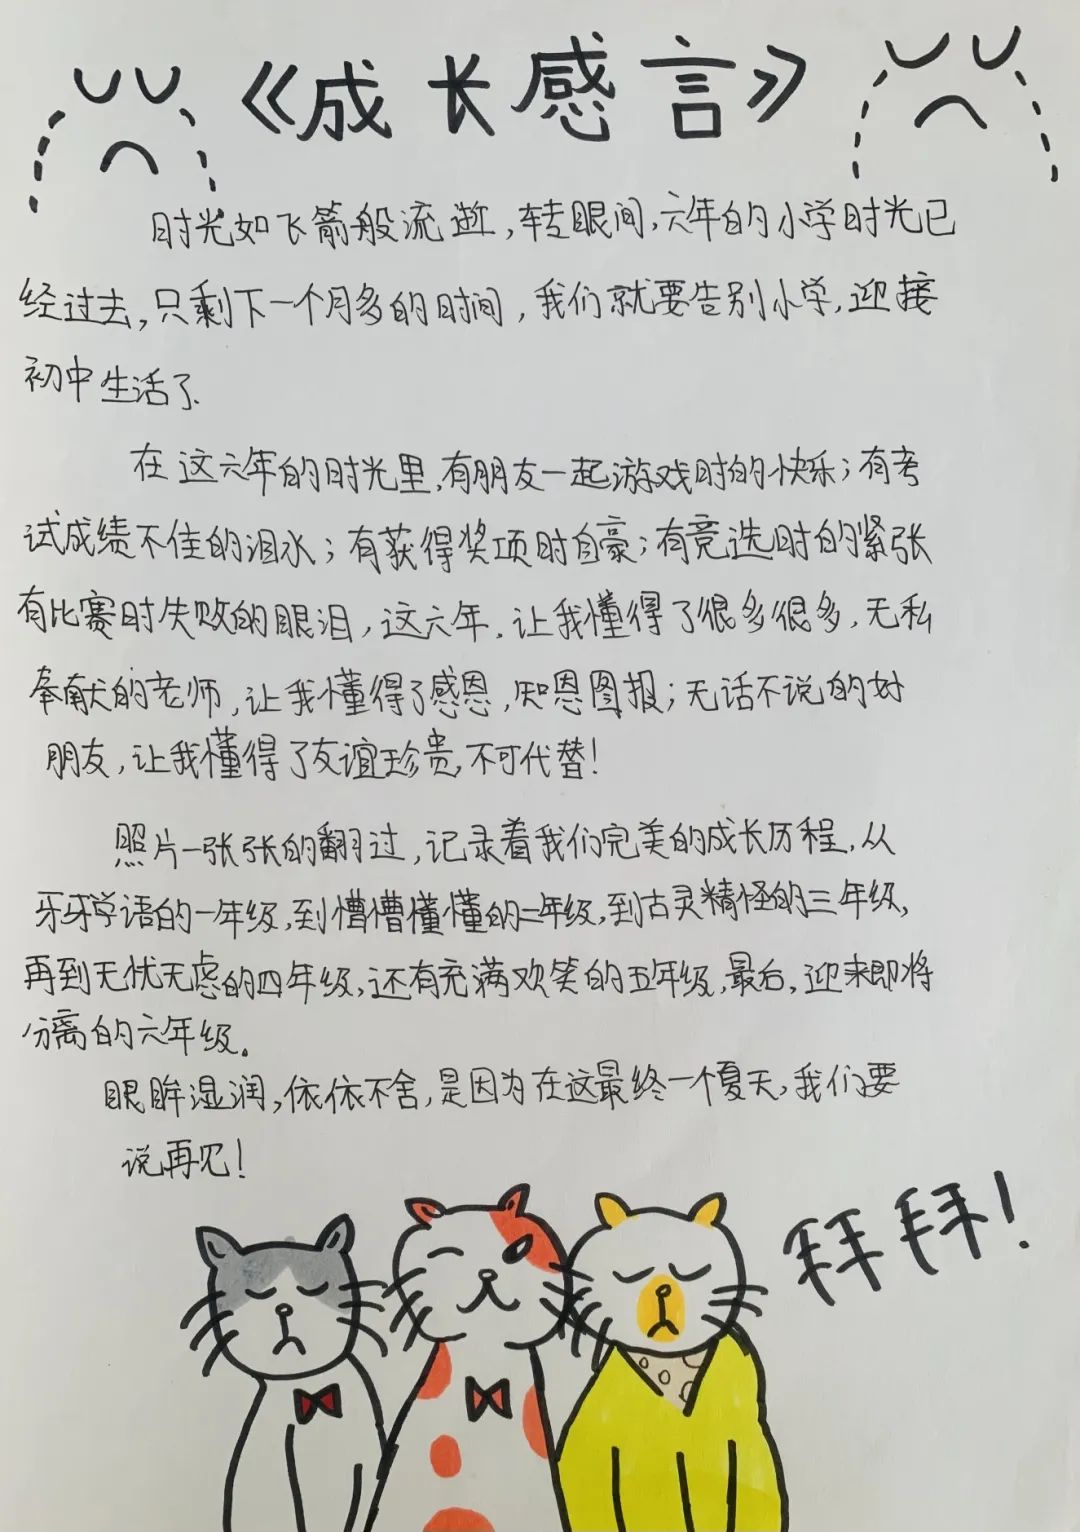 《成长感言》
时光如飞箭般流逝,转眼间,六年的小学时光已
经过去,只剩下一个月多的时间,我们就要告别小学,迎接
初中生活了.
在这六年的时光里,有朋友一起游戏时的快乐;有考
试成绩不佳的泪水;有获得奖项时自豪;有竞选时的紧张
有比赛时失败的眼泪,这六年,让我懂得了很多很多,无私
奉献的老师,让我懂得了感恩,知恩图报;无话不说的好
朋友,让我懂得了友谊珍贵,不可代替!
照片一张张的翻过,记录着我们完美的成长历程,从
牙牙学语的一年级,到懵懵懂懂的二年级,到古灵精怪的三年级,
再到无忧无虑的四年级,还有充满欢笑的五年级,最后,迎来即将
分离的六年级。
眼眸湿润,依依不舍,是因为在这最终一个夏天,我们要
说再见!
拜拜!